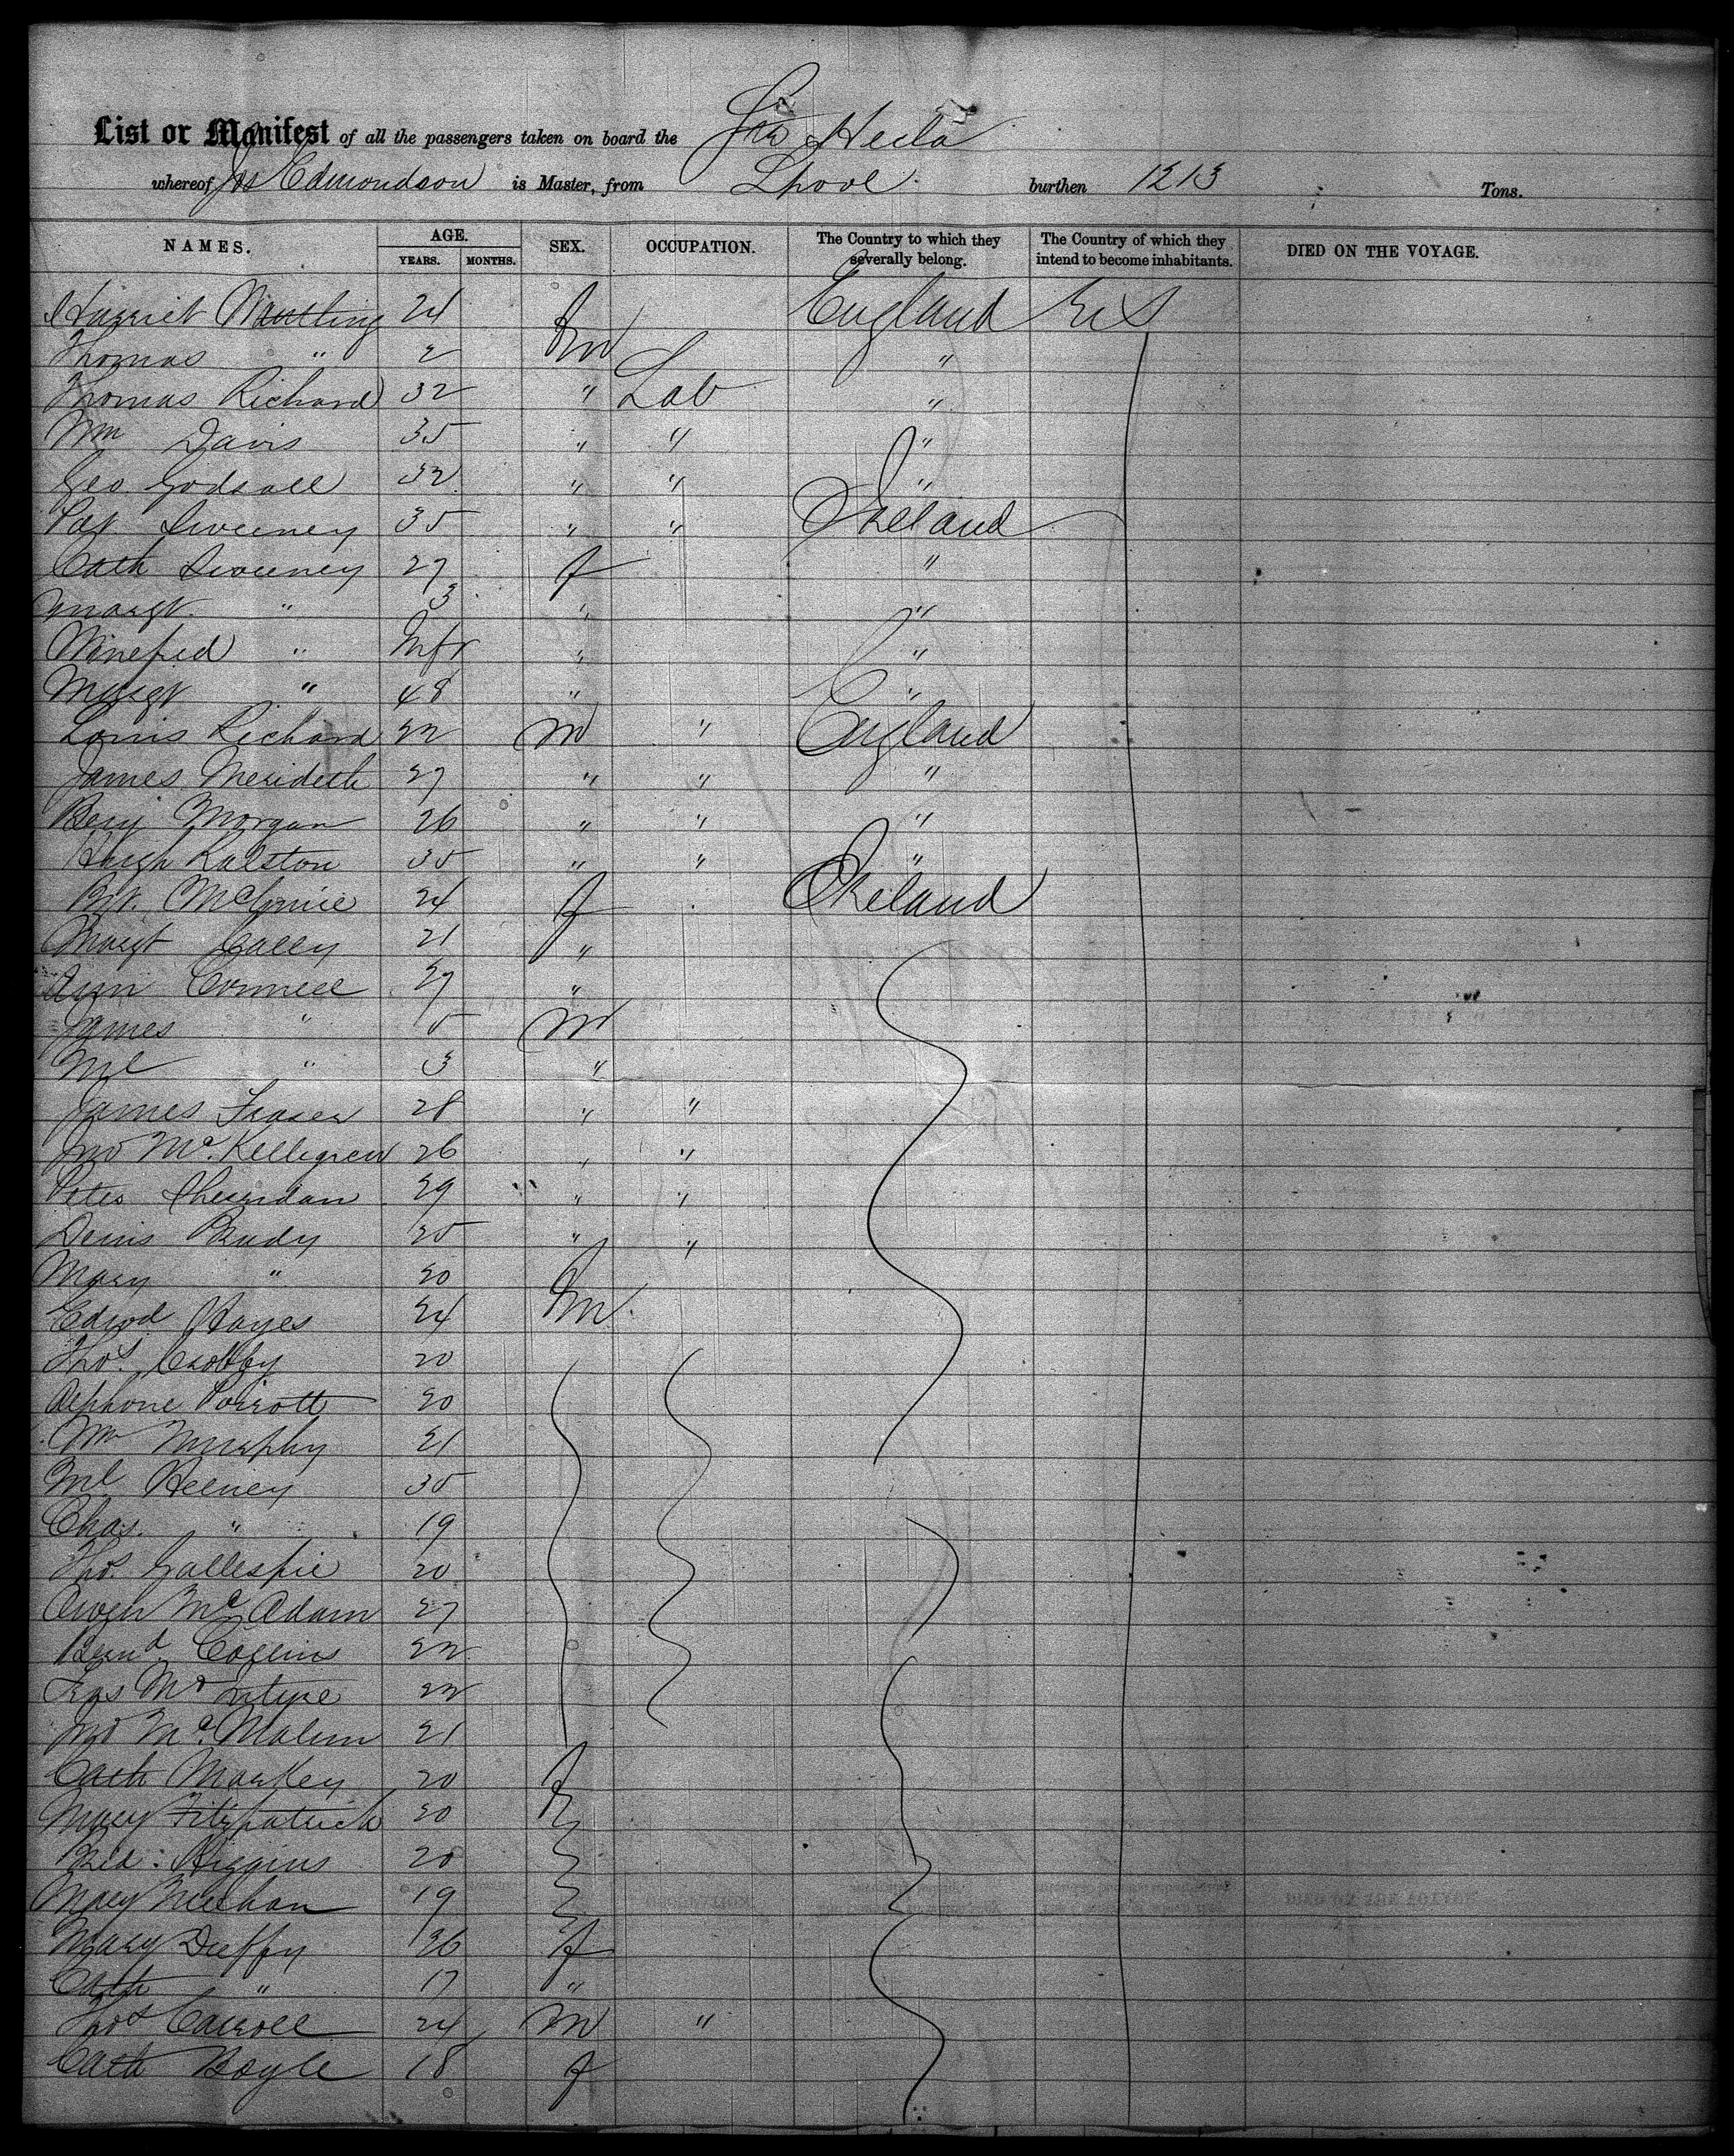 List or Manifest of all the passengers taken on board the Str Hecla
whereof Jos Edmondson is Master, from Lpool. burthen 1213 Tons.
NAMES. AGE. SEX. OCCUPATION. The Country to which they severally belong. The Country of which they intend to become inhabitants. DIED ON THE VOYAGE.
YEARS. MONTHS.
Harriet 24 f England U S
Thomas " 2 m "
Thomas Richard 32 " Lab "
Wm Davis 35 " " "
Geo Godsall 32 " " "
Pat Sweeney 35 " " Ireland
Cath Sweeney 27 f "
Margt " 3 " "
Winefred " Inft " "
Margt " 48 " "
Louis Richard 22 m " England
James Merideth 27 " " "
Benj Morgan 26 " " "
Hugh Ralston 35 " " "
Bt. 24 f Ireland
Margt Cally 21 "
Ann Connell 27 "
James " 5 m
Ml " 3 "
James Fraser 28 " "
Jno Mc Kellegrew 26 " "
Peter Sherridan 29 " "
Denis Brady 25 " "
Mary " 20 f
Edwd Hayes 24 m
Thos 20
Alphone Poirrott 20
Wm Murphy 21
Ml Heeney 35
Chas. " 19
Thos Gallespie 20
Owen Mc Adam 27
Bernd Collins 22
Fras Mc Intyre 22
Jno Mc 21
Cath Markey 20 f
Mary Fitzpatrick 20
Bid: Higgins 20
Mary Meehan 19
Mary Duffy 26 f
Cath " 17 "
Thos Carroll 24 m "
Cath Boyle 18 f